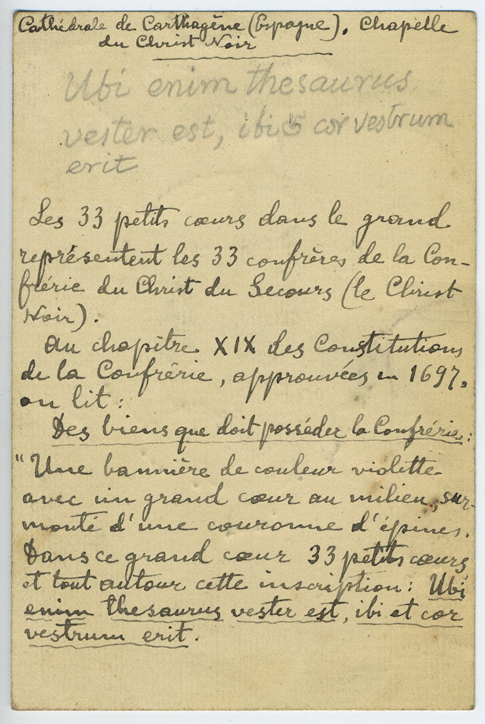 Cathédrale de Carthagène (Espagne), Chapelle
du Christ Noir
Ubi enim thesaurus
vester est, ibi cor vestrum
erit
Les 33 petits cœurs dans le grand
représentent les 33 confrères de la Con-
frérie du Christ du Secours (le Christ
Noir).
Au chapitre XIX des Constitutions
de la Confrérie, approuvées en 1697,
on lit :
Des biens que doit posséder la Confrérie :
"Une bannière de couleur violette
avec un grand cœur au milieu, sur-
monté d'une couronne d'épines.
Dans ce grand cœur 33 petits cœurs
et tout autour cette inscription : Ubi
enim thesaurus vester est, ibi et cor
vestrum erit.